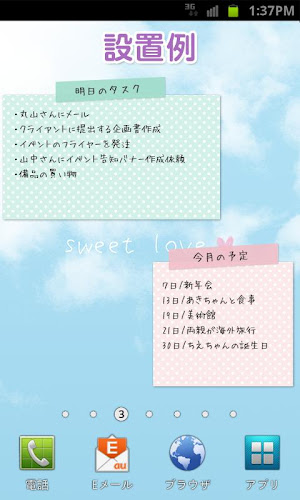 3G 1:37PM
設置例
明日のタスク
・丸山さんにメール
・クライアントに提出する企画書作成
・イベントのフライヤーを発注
・山中さんにイベント告知バナー作成依頼
・備品の買い物
sweet love
今月の予定
7日/新年会
13日/あきちゃんと食事
19日/美術館
21日/両親が海外旅行
30日/ちえちゃんの誕生日
3
E
au
電話 Eメール ブラウザ アプリ